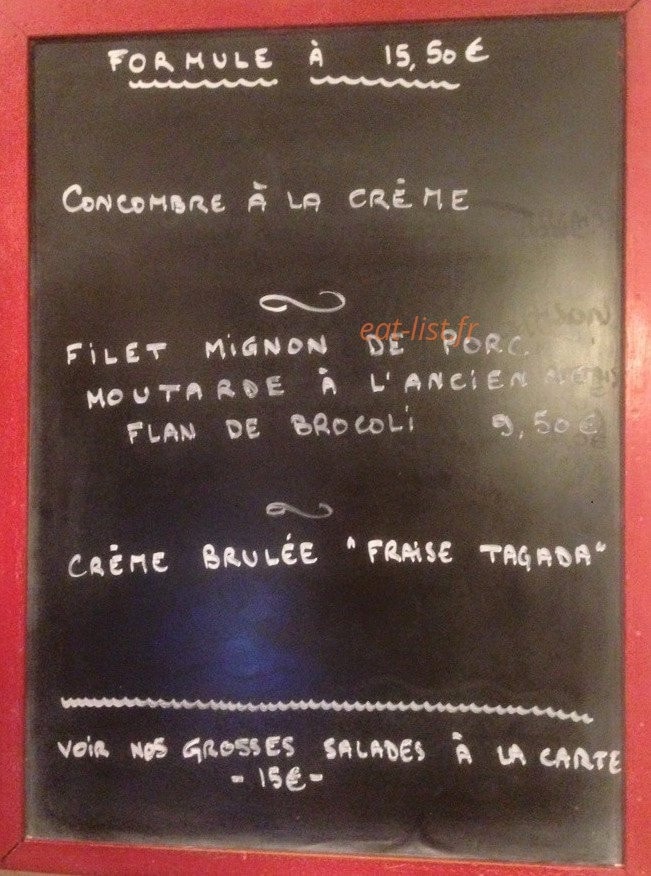 FORMULE À 15,50€
CONCOMBRE À LA CRÈME
eat-list.fr
FILET MIGNON DE PORC
MOUTARDE À L'ANCIENNE
FLAN DE BROCOLI 9,50€
CRÈME BRULÉE "FRAISE TAGADA"
VOIR NOS GROSSES SALADES À LA CARTE
- 15€ -